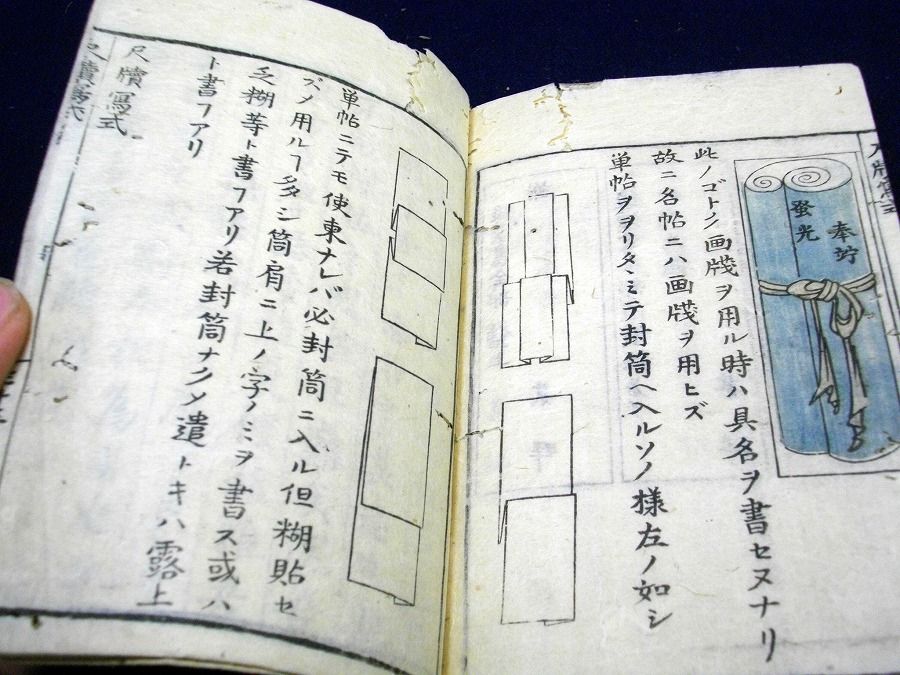 奉竚
蚤光
此ノゴトク画牋ヲ用ル時ハ具名ヲ書セヌナリ
故ニ名帖ニハ画牋ヲ用ヒズ
単帖ヲヲリタヽミテ封筒ヘ入ルソノ様左ノ如シ
単帖ニテモ使柬ナレバ必封筒ニ入ル但糊貼セ
ズメ用ルヿ多シ筒肩ニ上ノ字ノミヲ書ス或ハ
乏糊等ト書ヿアリ若封筒ナクメ遣トキハ露上
ト書ヿアリ
尺牘寫式